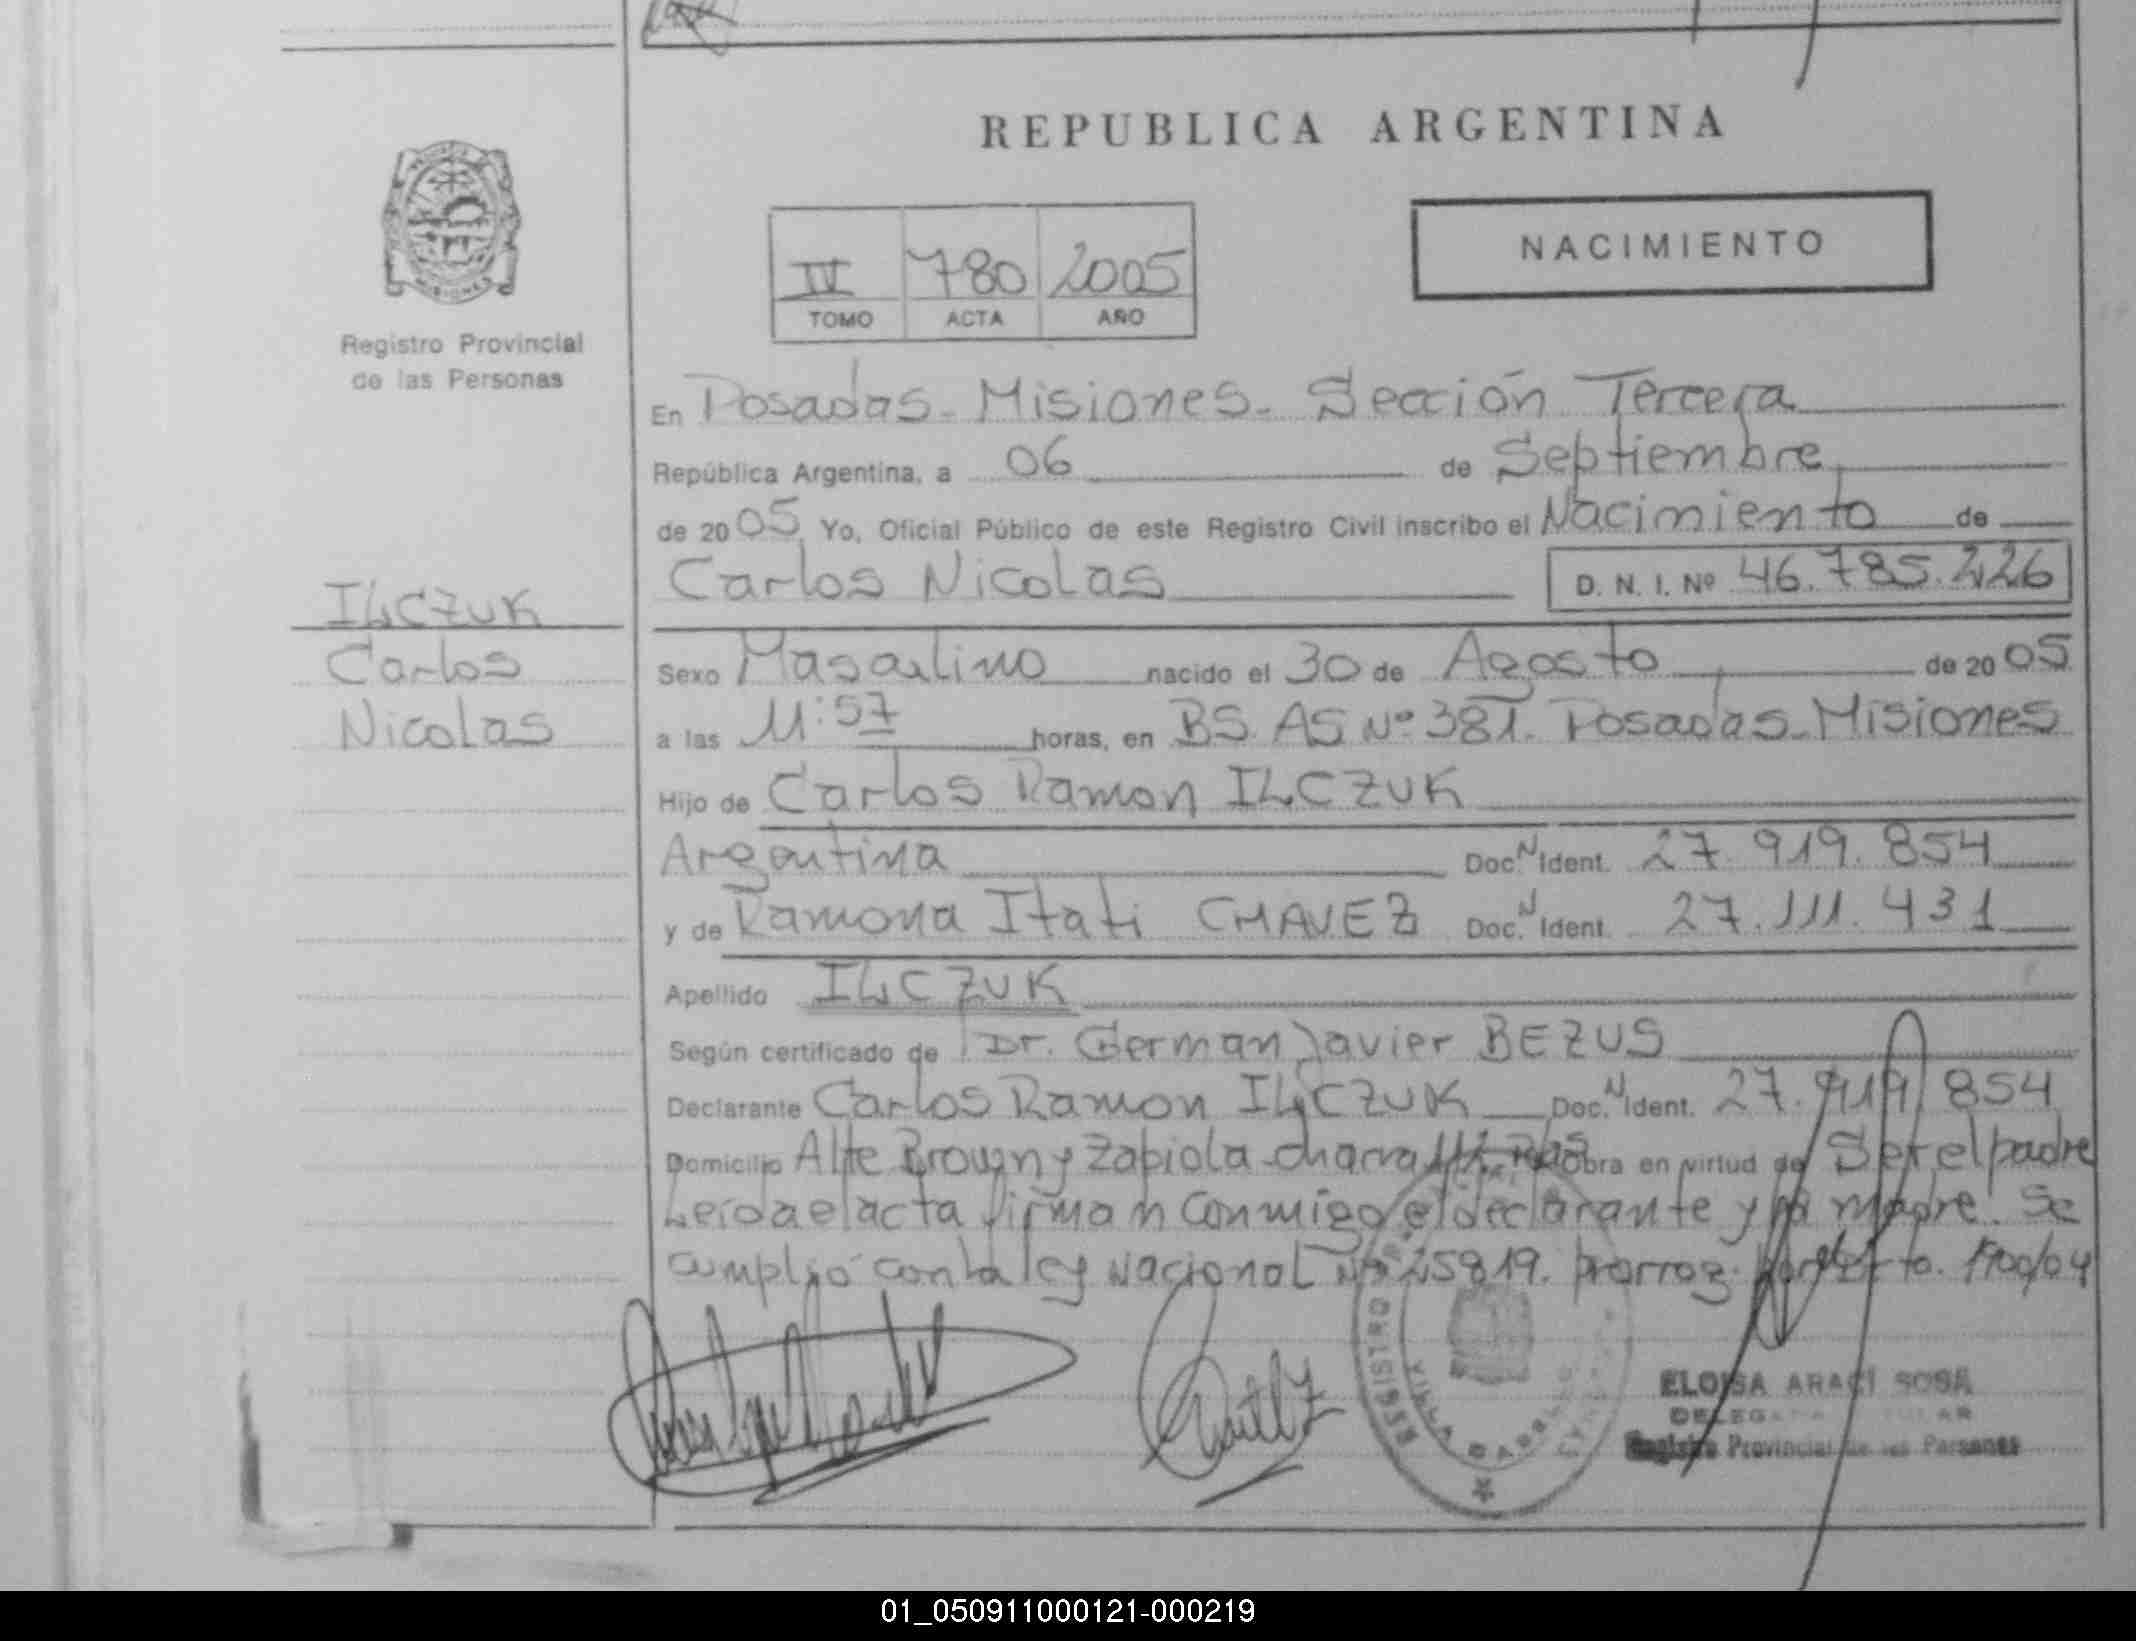 REPUBLICA ARGENTINA
NACIMIENTO
IV 780 2005
TOMO ACTA AÑO
MISIONES
Registro Provincial
de las Personas
ILCZUK
Carlos
Nicolas
En Posadas - Misiones - Sección Tercera
República Argentina, a 06 de Septiembre
de 2005. Yo, Oficial Público de este Registro Civil inscribo el Nacimiento de
Carlos Nicolas D. N. I. Nº 46.785.226
Sexo Masculino nacido el 30 de Agosto de 2005
a las 11:57 horas, en BS. AS Nº 381. Posadas - Misiones
Hijo de Carlos Ramon ILCZUK
Argentina Doc. N Ident. 27.919.854
y de Ramona Itati CHAVEZ Doc. N Ident. 27.111.431
Apellido ILCZUK
Según certificado de Dr. German Javier BEZUS
Declarante Carlos Ramon ILCZUK Doc. N Ident. 27.919.854
Domicilio Alte Brown y Zapiola chacra Obra en virtud de Ser el padre
Leída el acta firman conmigo el declarante y la madre. Se
cumplió con la ley Nacional Nº 25819. prorrog. por 1700/04
ELOISA ARACI SOSA
DELEGADA TITULAR
Registro Provincial de las Personas
REGISTRO
VILLA CABELLO
01_050911000121-000219